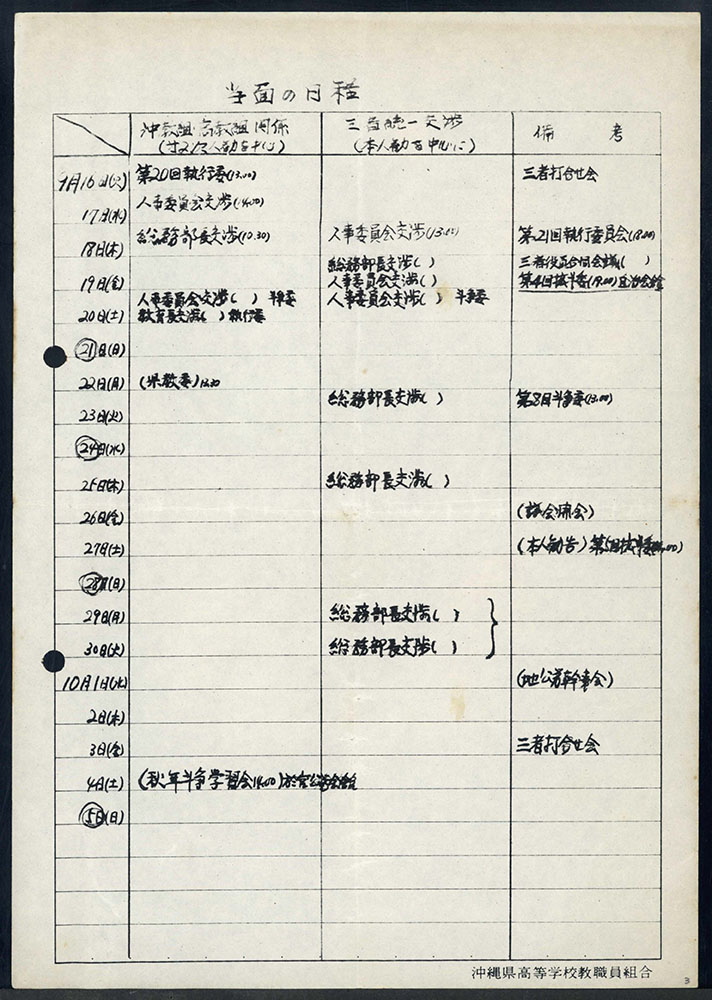 当面の日程
沖教組・高教組関係 三者統一交渉 備考
(本人勧を中心に)
9月16日(火) 第20回執行委(13.00) 三者打合せ会
17日(水) 人事委員会交渉(14.00)
18日(木) 総務部長交渉(10.30) 人事委員会交渉 第21回執行委員会(18.00)
総務部長交渉( ) 三者役員合同会議( )
19日(金) 人事委員会交渉( )
20日(土) 人事委員会交渉( ) 斗争委 人事委員会交渉( ) 斗争委
教育長交渉( ) 執行委
21日(日)
22日(月) (県教委)
23日(火) 総務部長交渉( ) 第8回斗争委(13.00)
24日(水)
25日(木) 総務部長交渉( )
26日(金) (議会開会)
27日(土) (本人勧告)
28日(日)
29日(月) 総務部長交渉( )
30日(火) 総務部長交渉( )
10月1日(水) (地公労幹事会)
2日(木)
3日(金) 三者打合せ会
4日(土) (秋年斗争学習会14.00)
5日(日)
沖縄県高等学校教職員組合
3